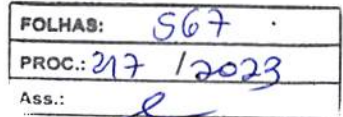 FOLHAS: 567
PROC.: 217 / 2023
Ass.: